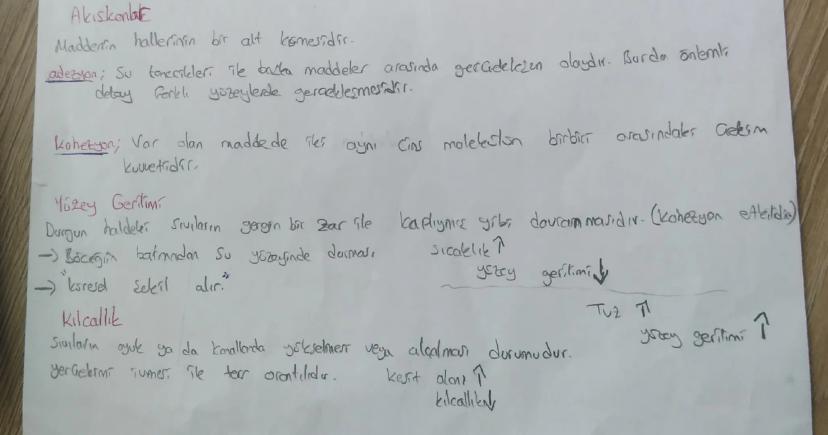 Akışkanlık
Maddenin hallerinin bir alt kümesidir.
adezyon; Su tanecikleri ile başka maddeler arasında gerçekleşen olaydır. Burda önemli
detay farklı yüzeylerde gerçekleşmesidir.
Kohezyon; Var olan maddede iki aynı cins molekülün birbiri arasındaki çekim
kuvvetidir.
Yüzey Gerilimi
Durgun haldeki sıvıların gergin bir zar ile kaplıymış gibi davranmasıdır. (Kohezyon etkilidir)
→ Böceğin batmadan su yüzeyinde durması. sıcaklık ↑
yüzey gerilimi ↓
→ "küresel şekil alır."
Tuz ↑
yüzey gerilimi ↑
Kılcallık
Sıvıların oyuk ya da kanallarda yükselmesi veya alçalması durumudur.
yerçekimi ivmesi ile ters orantılıdır. kesit alanı ↑
kılcallık ↓